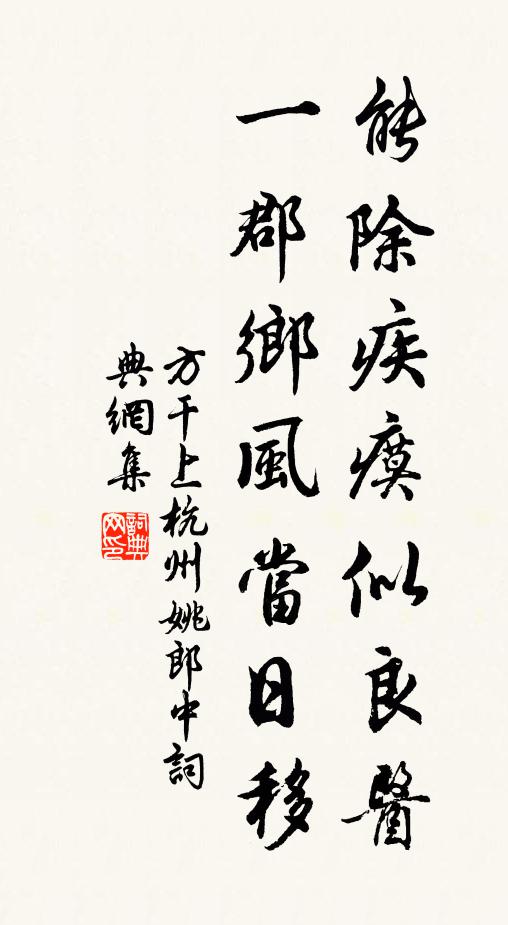 能除疾瘼似良醫
一郡鄉風當日移
方干上杭州姚郎中詞
典網集
詞典
网印